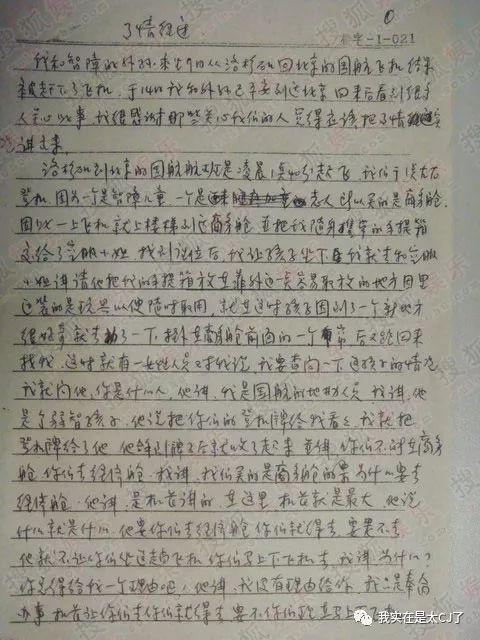 了情经过
0
1-021
我和智障的外孙来9日从洛杉矶回北京的国航飞机结果
被赶下了飞机，于14日我和外孙已平安到达北京 回来后看到很多
人关心此事 我很感谢那些关心我们的人 觉得应该把了情
讲出来
洛杉矶到北京的国航航班是凌晨1点40分起飞 我们于1点左右
登机，因为一个是智障儿童，一个是老人 所以买的是商务舱
因此一上飞机就上楼梯到达商务舱 并把我随身携带的手提箱
交给了空服小姐 找到座位后 我让孩子坐下 我就去和空服
小姐讲请他把我的手提箱放在靠外边一点容易取放的地方因里
边装的是玩具以便随时取用，就在这时孩子因到了一个新地方
很好奇就去了一下，在商务舱前面的一个帘 后又跑回来
找我 这时就有一女性人员对我说，我要查问一下这孩子的情况
我就问他，你是什么人，他讲，我是国航的地勤人员 我讲，他
是个弱智孩子，他说把你们的登机牌给我看看 我就把
登机牌给了他 他拿到牌子后就收了起来 并讲，你们不能坐商务
舱 你们去经济舱，我讲，我们买的是商务舱的票为什么要去
经济舱，他讲，是机长讲的，在这里 机长就是最大，他说
什么就是什么，他要你们去经济舱 你们就得去 要是不去
他就不让你们坐这趟飞机 你们马上下飞机去，我讲，为什么？
你总得给我一个理由吧，他讲，我没有理由给你 我只是奉命
办事 机长让你们去你们就得去 要不你们现在马上
搜狐娱乐
我实在是太CJ了